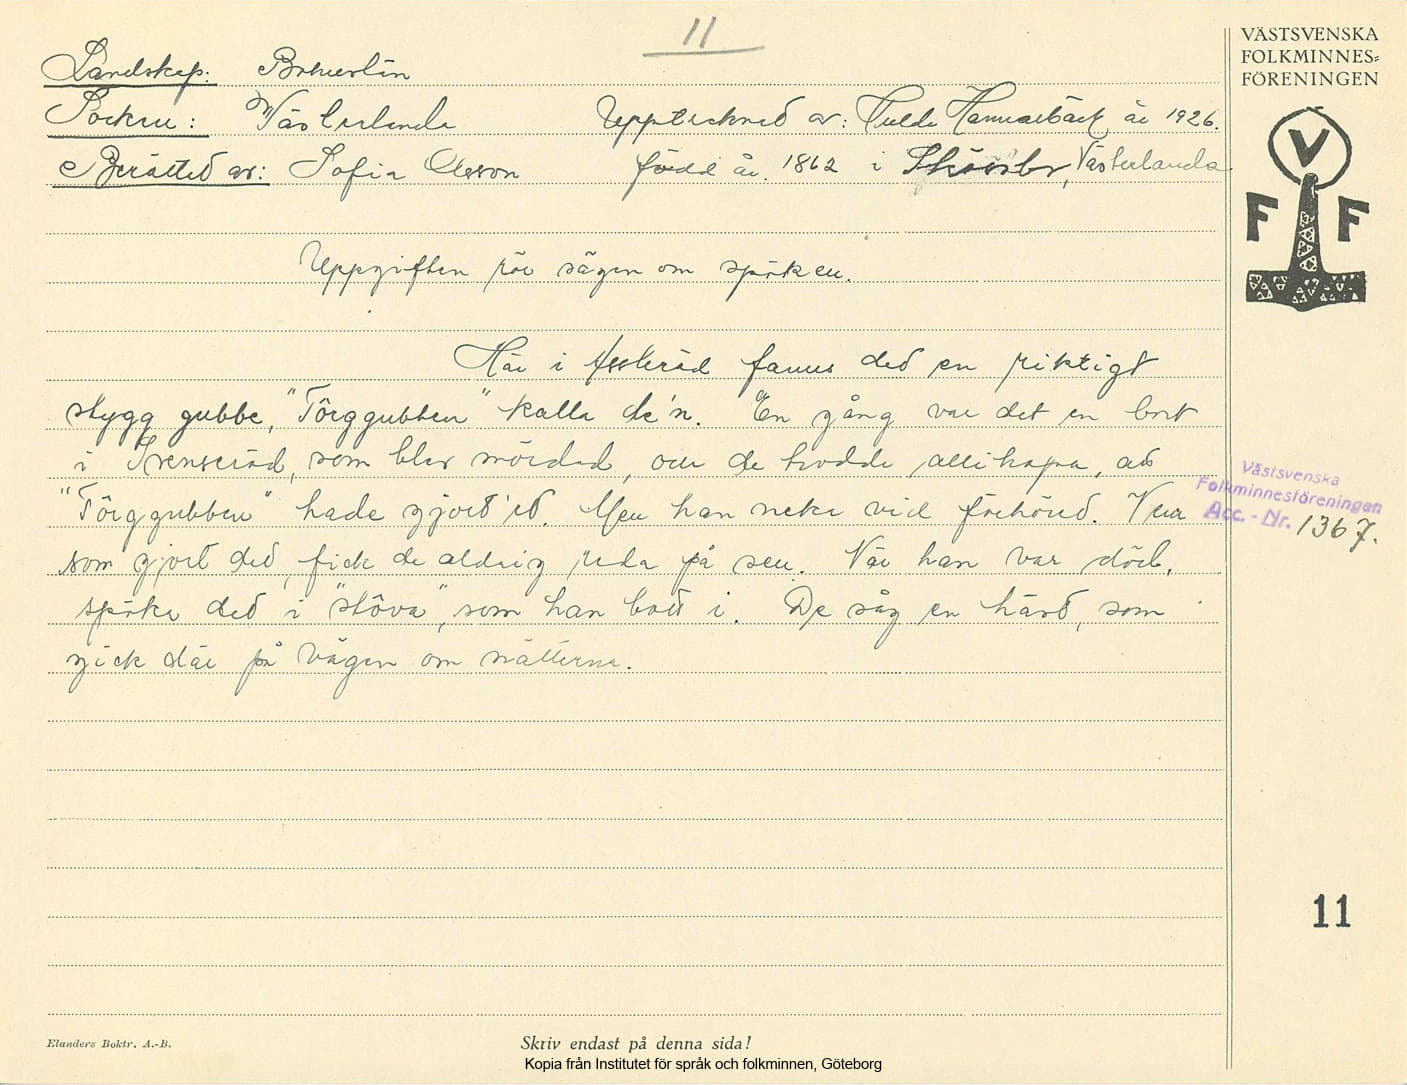 11
VÄSTSVENSKA
FOLKMINNES-
FÖRENINGEN
Landskap: Bohuslän
Socken: Västerlanda Upptecknad av: Hulda Hammarbäck år 1926.
Berättad av: Sofia Olsson född år 1862 i Västerlanda
V
F F
Uppgiften rör sägen om spöken.
Här i Assleröd fanns ded en riktigt
stygg gubbe, "Törggubben" kalla de'n. En gång var det en bort
i Svenseröd, som blev mördad, och de trodde allihopa, ad
"Törggubben" hade gjort'ed. Men han neka vid förhöred. Vem
som gjort ded, fick de aldrig reda på sen. När han var död,
spöka ded i "stöva", som han bott i. De såg en häst, som
gick där på vägen om nätterna.
Västsvenska
Folkminnesföreningen
Acc.-Nr. 1367.
11
Elanders Boktr. A.-B.
Skriv endast på denna sida!
Kopia från Institutet för språk och folkminnen, Göteborg